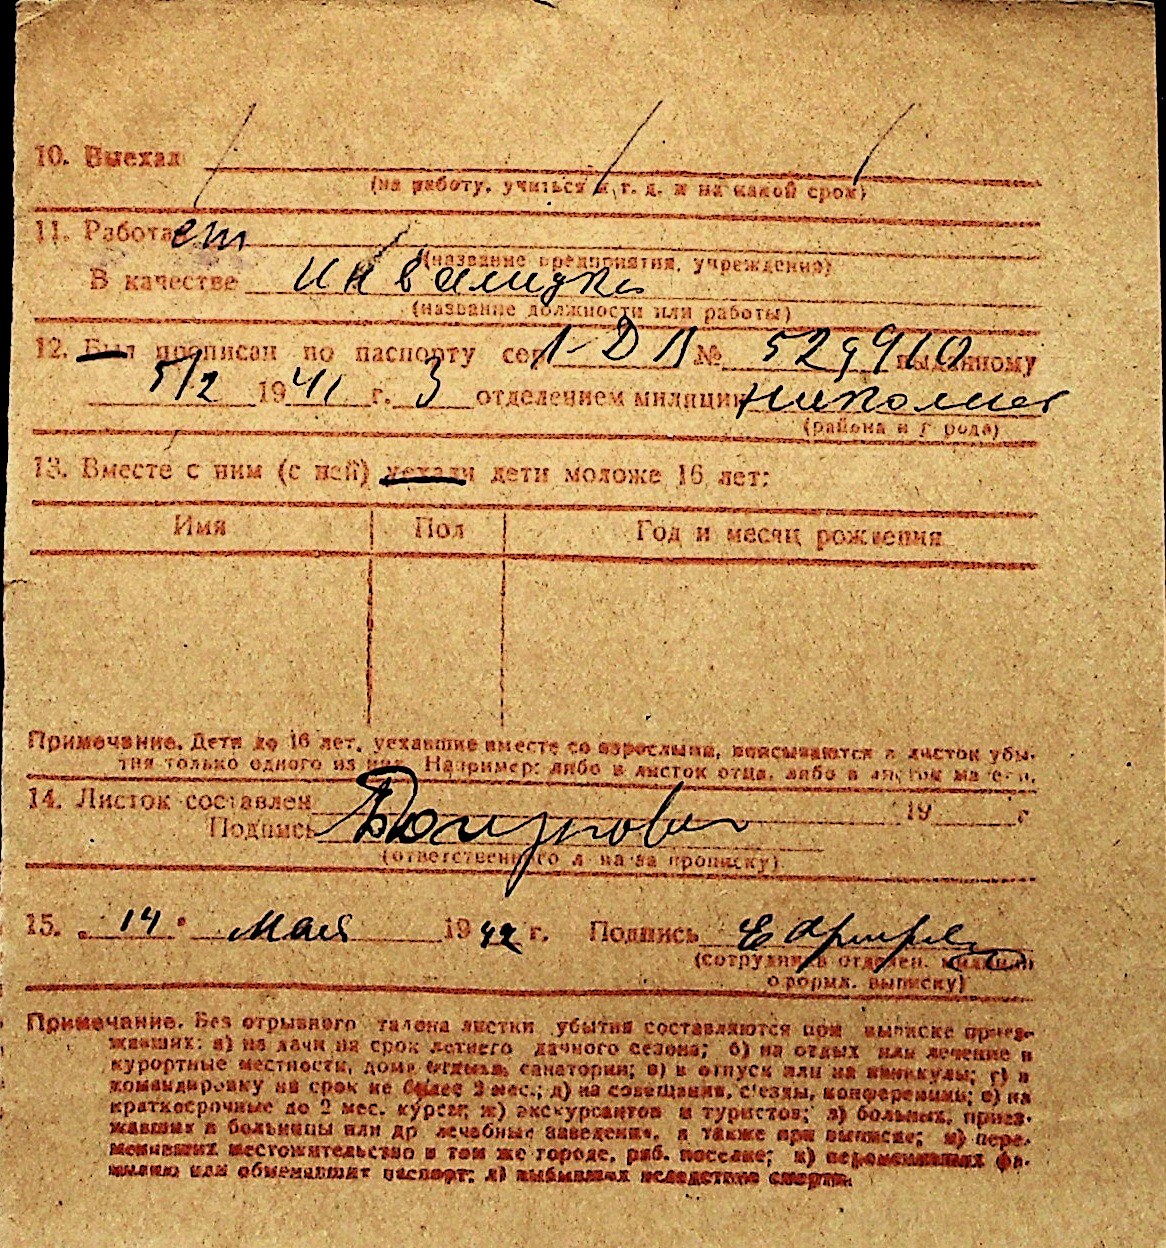 10. Выехал
(на работу, учиться и т. д. и на какой срок)
11. Работает
(название предприятия, учреждения)
В качестве инвалидка
(название должности или работы)
12. Был прописан по паспорту сер № выданному
5/2 1941 г. 3 отделением милиции
(района и города)
13. Вместе с ним (с ней) уехали дети моложе 16 лет:
Имя Пол Год и месяц рождения
Примечание. Дети до 16 лет, уехавшие вместе со взрослыми, вписываются в листок убы-
тия только одного из них. Например: либо в листок отца, либо в листок матери.
14. Листок составлен 19 г
Подпись
(ответственного л на за прописку)
15. „14" мая 1942 г. Подпись
(сотрудника отделен. милиции
оформл. выписку)
Примечание. Без отрывного талона листки убытия составляются при выписке приез-
жавших: а) на дачи на срок летнего дачного сезона; б) на отдых или лечение в
курортные местности, дома отдыха, санатории; в) в отпуск или на каникулы; г) в
командировку на срок не более 2 мес.; д) на совещания, с'езды, конференции; е) на
краткосрочные до 2 мес. курсы; ж) экскурсантов и туристов; з) больных, приез-
жавших в больницы или др лечебные заведения, а также при выписке; и) пере-
менивших местожительство в том же городе, раб. поселке; к) переменивших фа-
милию или обменивших паспорт; л) выбывших вследствие смерти.